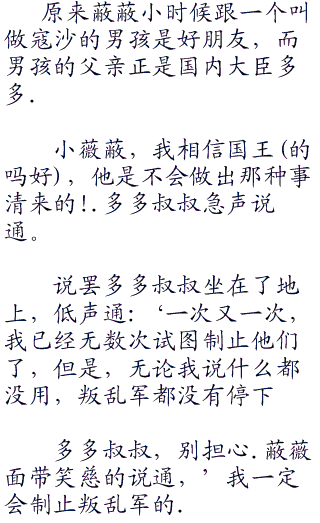 原来蔽蔽小时候跟一个叫
做寇沙的男孩是好朋友，而
男孩的父亲正是国内大臣多
多.
小薇蔽，我相信国王(的
吗好)，他是不会做出那种事
清来的!.多多叔叔急声说
通。
说罢多多叔叔坐在了地
上，低声通：‘一次又一次，
我已经无数次试图制止他们
了，但是，无论我说什么都
没用，叛乱军都没有停下
多多叔叔，别担心.蔽薇
面带笑慈的说通，’我一定
会制止叛乱军的.